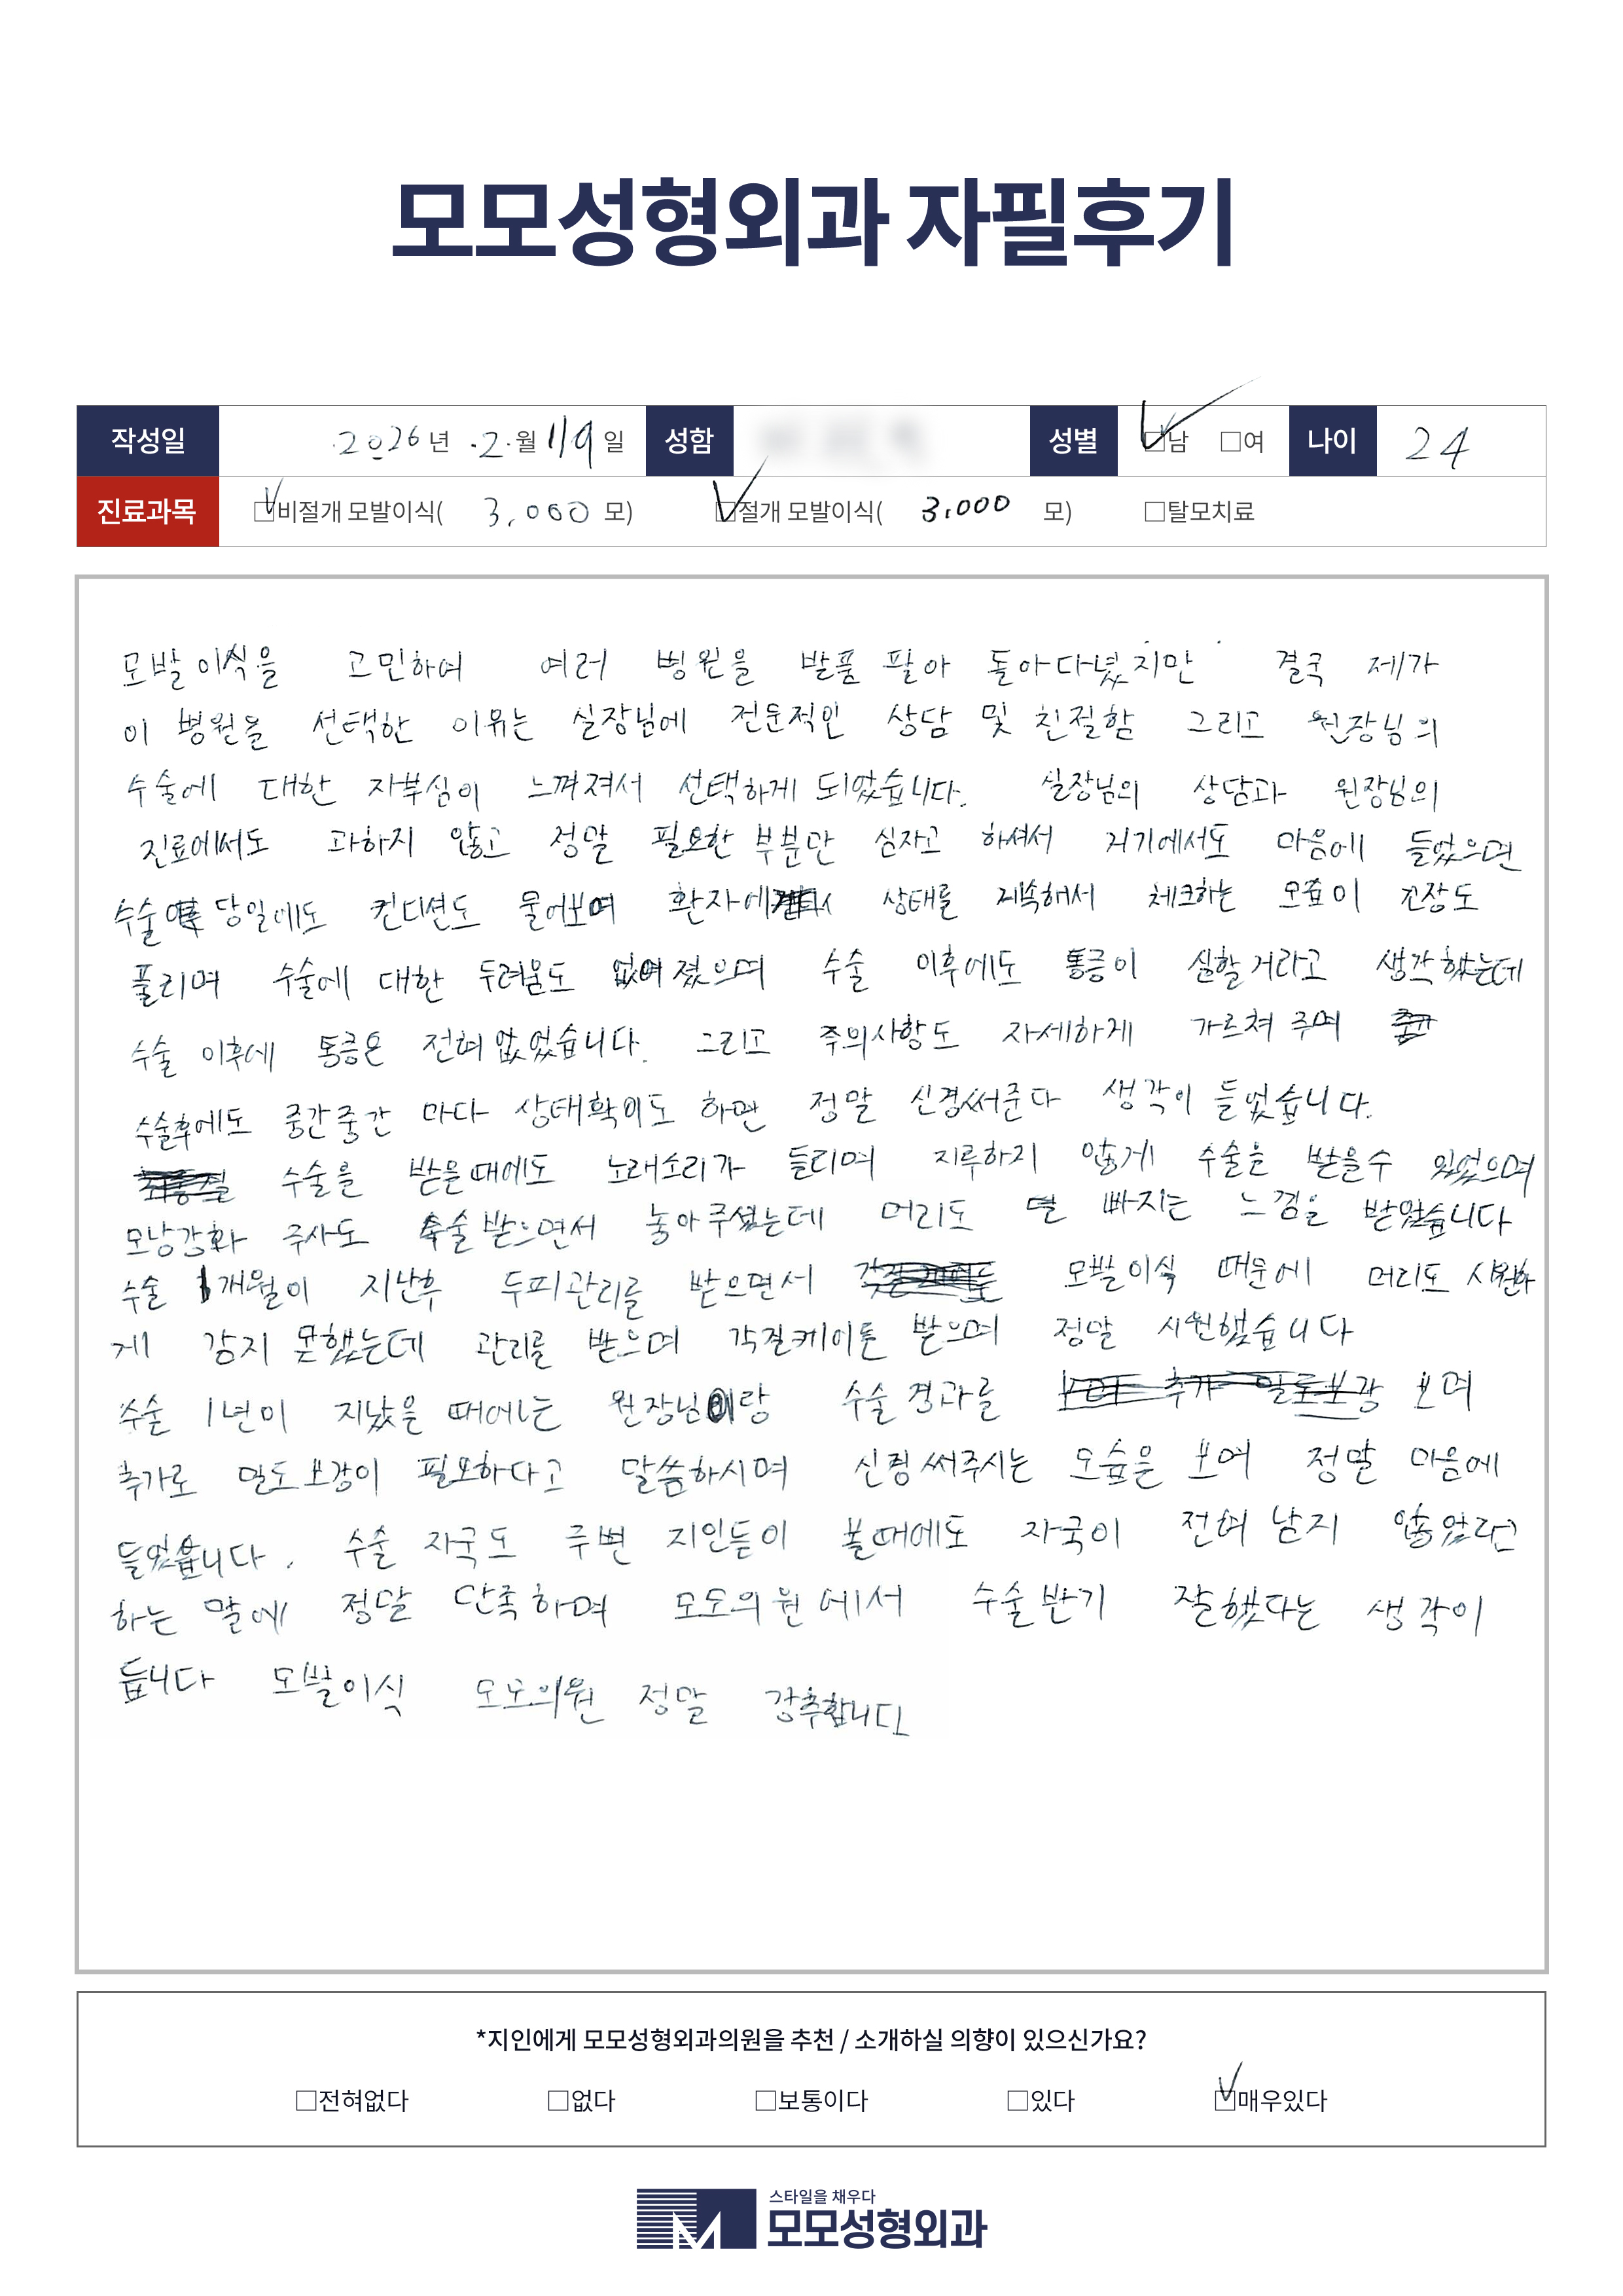 모모성형외과 자필후기
작성일 2026년 2월 19일 성함 성별 □남 □여 나이 24
진료과목 □비절개 모발이식( 3,000 모) □절개 모발이식( 3,000 모) □탈모치료
모발이식을 고민하여 여러 병원을 발품 팔아 돌아다녔지만 결국 제가
이 병원을 선택한 이유는 실장님에 전문적인 상담 및 친절함 그리고 원장님의
수술에 대한 자부심이 느껴져서 선택하게 되었습니다. 실장님의 상담과 원장님의
진료에서도 과하지 않고 정말 필요한 부분만 심자고 하셔서 거기에서도 마음에 들었으면
수술 당일에도 컨디션도 물어보며 환자에 상태를 계속해서 체크하는 모습이 긴장도
풀리며 수술에 대한 두려움도 없어졌으며 수술 이후에도 통증이 심할거라고 생각했는데
수술 이후에 통증은 전혀 없었습니다. 그리고 주의사항도 자세하게 가르쳐 주며
수술후에도 중간중간 마다 상태확인도 하면 정말 신경써준다 생각이 들었습니다.
수술을 받을때에도 노래소리가 들리며 지루하지 않게 수술을 받을수 있었으며
모낭강화 주사도 수술받으면서 놓아주셨는데 머리도 덜 빠지는 느낌을 받았습니다
수술 1개월이 지난후 두피관리를 받으면서 모발이식 때문에 머리도 시원하
게 감지 못했는데 관리를 받으며 각질케어를 받으며 정말 시원했습니다
수술 1년이 지났을 때에는 원장님이랑 수술경과를 보며
추가로 밀도보강이 필요하다고 말씀하시며 신경써주시는 모습을 보며 정말 마음에
들었습니다. 수술 자국도 주변 지인들이 볼때에도 자국이 전혀 남지 않았다고
하는 말에 정말 만족하며 모모의원에서 수술받기 잘했다는 생각이
듭니다 모발이식 모모의원 정말 강추합니다
*지인에게 모모성형외과의원을 추천 / 소개하실 의향이 있으신가요?
□전혀없다 □없다 □보통이다 □있다 □매우있다
스타일을 채우다
모모성형외과